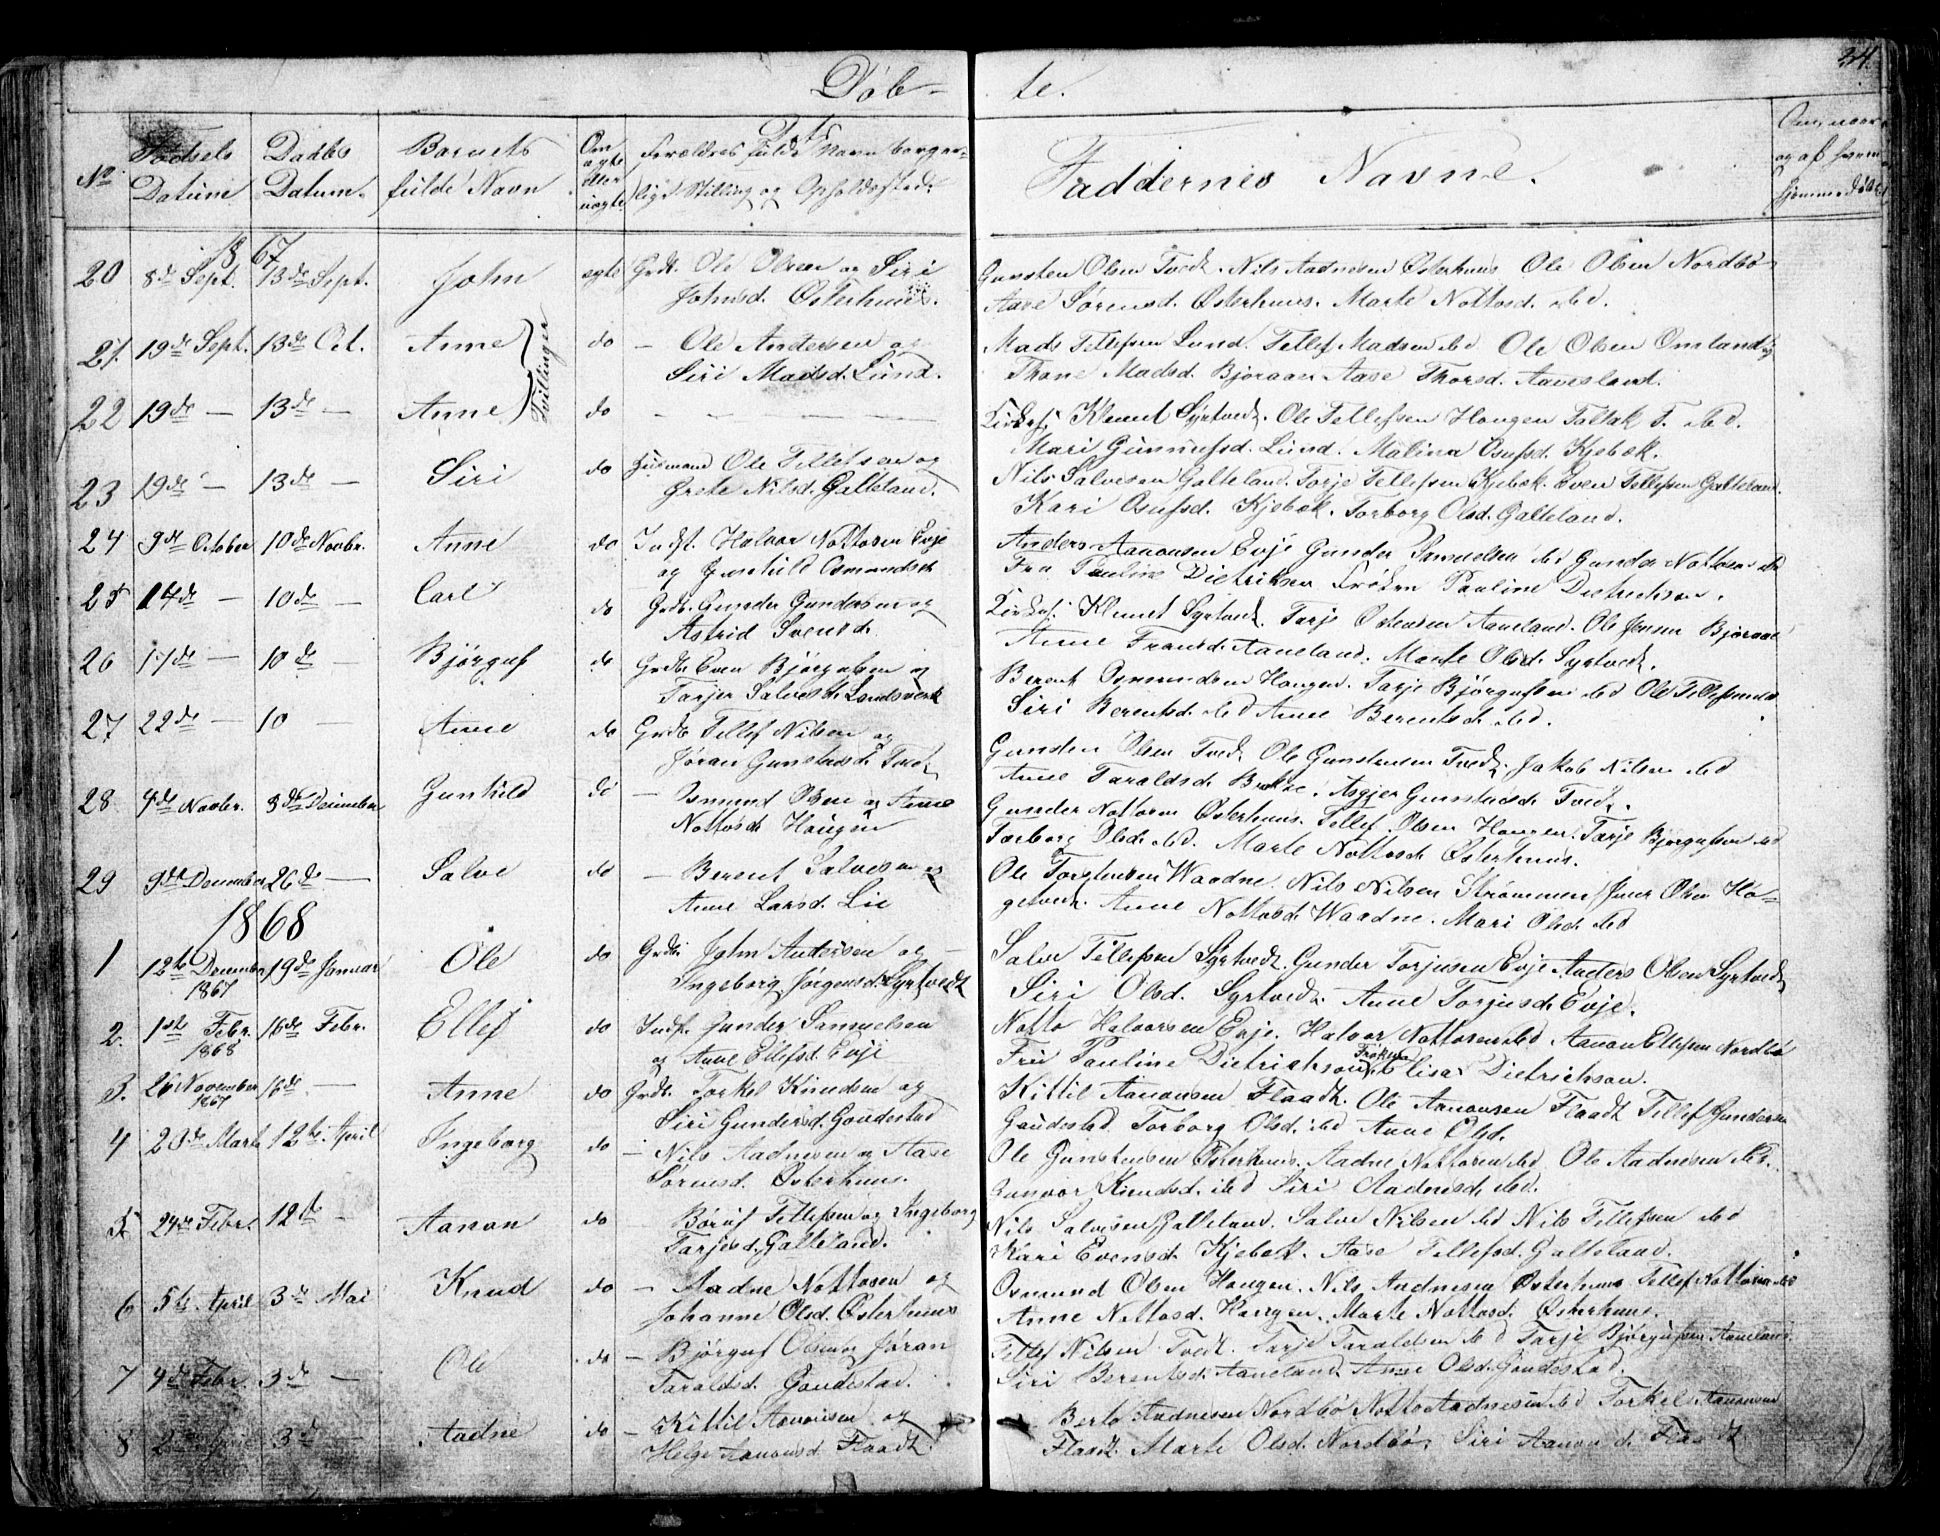 Døb-
te.
34.
No
Fødsels Datum
Daabs Datum.
Barnets fulde Navn
Om ægte eller uægte
Forældres fulde Navn borger-
lige Stilling og Opholdssted.
Faddernes Navne.
og af hvem hjemmedøbt
1867
20 8de Sept. 13de Sept. John egte Grdb. Ole Olsen og Siri
Johnsd. Østerhuus.
Gunsten Olsen Tvedt. Nils Aadnesen Østerhuus Ole Olsen Nordbö
Aase Sörensd. Østerhuus. Marte Nottosd. ibd.
21. 19de Sept. 13de Oct. Anne do — Ole Andersen og
Siri Madsd. Lund.
Tvillinger
Mads Tellefsen Lund. Tellef Madsen ibd Ole Olsen Omland og
Thone Madsd. Bjoraaen Aase Thorsd. Aavesland.
22 19de — 13de — Anne do — — —
Kirkes. Klemet Syrtvedt. Ole Tellefsen Haugen Taltak T. ibd.
Mari Gunnufsd. Lund. Malina Osufsd. Kjebek.
23 19de — 13de — Siri do Huusmand Ole Tellefsen og
Grete Nilsd. Galteland.
Nils Salvesen Galteland. Torje Tellefsen Kjebek. Even Tellefsen Galteland.
Kari Osufsd. Kjebek. Torborg Olsd. Galteland.
24 9de October 10de Novbr. Anne do Indst. Halvor Nottosen Evje
og Gunhild Osmundsd.
Anders Aanonsen Evje Gunder Samuelsen ibd Gunder Nottosen ibd
Fru Pauline Dietrikson Frøken Pauline Dietrichson.
25 14de — 10de — Carl do Grdb. Gunder Gundersen og
Astrid Svensd.
Kirkes. Klemet Syrtvedt. Tarje Ostensen Aaneland. Ole Jensen Bjoraae
Anne Fransd. Aaneland. Marte Olsd. Syrtvedt.
26 17de — 10de — Bjørguf do Grdb. Even Bjørgufsen og
Tarjer Salvesd. Landsverk
Berent Osmundsen Haugen. Tarje Bjørgufsen ibd Ole Tellefsen ibd
Siri Berentsd. ibd Anne Berentsd. ibd.
27 22de — 10 — Anne do Grdb. Tellef Nilsen og
Jøran Gunstensd. Tvedt
Gunsten Olsen Tvedt. Ole Gunstensen Tvedt. Jakob Nilsen ibd
Anne Taraldsd. Asgjer Gunstensd. Tvedt.
28. 4de Novbr. 8de December Gunhild do — Osmund Olsen og Anne
Nottosd. Haugen
Gunder Nottosen Østerhuus. Tellef Olsen Haugen. Tarje Bjørgufsen ibd
Torborg Olsd. ibd. Marte Nottosd. Østerhuus.
29 9de December 26de — Salve do — Berent Salvesen og
Anne Larsd. Lie
Ole Torstensen Waadne. Nils Nilsen Strømmen Iver Olsen Hø-
getvedt. Anne Nottosd. Waadne. Mari Olsd. ibd
1868
1 12te December 1867 19de Januar Ole do Grdb. John Andersen og
Ingeborg Jørgensd. Syrtvedt
Salve Tellefsen Syrtvedt. Gunder Torjusen Evje Anders Olsen Syrtvedt
Siri Olsd. Syrtvedt. Anne Torjusd. Evje.
2. 1ste Febr. 1868 16de Febr. Ellef do Indst. Gunder Samuelsen
og Anne Eilefsd. Evje
Notto Halvorsen Evje. Halvor Nottosen ibd Aanon Ellefsen Nordbö
Fru Pauline Dietrichson Frøken Elisa Dietrichson.
3. 26 November 1867 16de — Anne do Grdb. Torkel Knudsen og
Siri Gundersd. Gaudestad
Kittil Aanonsen Flaadt. Ole Aanonsen Flaadt Tellef Gundersen
Gaudestad. Torborg Olsd. ibd Anne Olsd.
4 20de Marts 12te April Ingeborg do — Nils Aadnesen og Aase
Sørensd. Østerhuus.
Ole Gunstensen Østerhuus. Aadne Nottosen ibd Ole Aadnesen ibd.
Gunvor Knudsd. ibd Siri Aadnesd. ibd.
5. 24de Febr. 12te — Aanon do Børuf Tellefsen og Ingeborg
Tarjesd. Galteland.
Nils Salvesen Galteland. Salve Nilsen ibd Nils Tellefsen ibd
Kari Evensd. Kjebek. Aase Tellefsd. Galteland.
6 5te April 3de Mai Knud do — Aadne Nottosen og
Johanne Olsd. Østerhuus
Osmund Olsen Haugen. Nils Aadnesen Østerhuus Tellef Nottosen ibd
Anne Nottosd. Haugen. Marte Nottosd. Østerhuus.
7 4de Febr. 3de — Ole do — Bjørguf Olsen Jøran
Taraldsd. Gaudestad.
Tellef Nilsen Tvedt. Tarje Taraldsen ibd Tarje Bjørgufsen Aaneland.
Siri Berentsd. Aaneland. Anne Olsd. Gaudestad.
8 2de April 3de — Aadne do — Kittil Aanonsen og
Helge Aanonsd. Flaadt.
Berto Aadnesen Nordbö Notto Aadnesen ibd Torkel Aanonsen
Flaadt. Marte Olsd. Nordbö. Siri Aanonsd. Flaadt